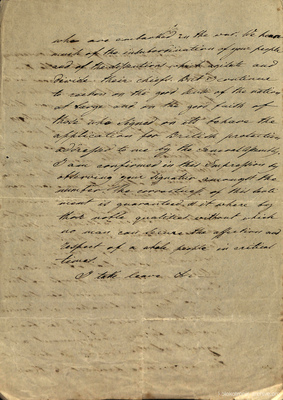 who are embarked in the war. We hear
much of the insubordination of your people
and of the dissensions which agitate and
divide their chiefs. But I continue
to reckon on the good sense of the nation
at large and on the good faith of
those who signed on its behave the
application for British protection
addressed to me by the
I am confirmed in this impression by
observing your signature amongst the
number. The correctness of this senti
ment is guaranteed by
those noble qualities without which
no man can secure the affections and
respect of a whole people in critical
times.
I take leave &c